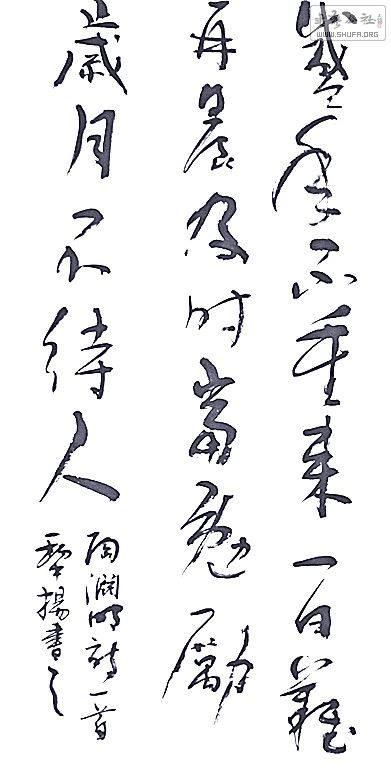 盛年不重来一日難
再晨及时當勉勵
歲月不待人
陶淵明詩一首
揚書之
WWW.SHUFA.ORG